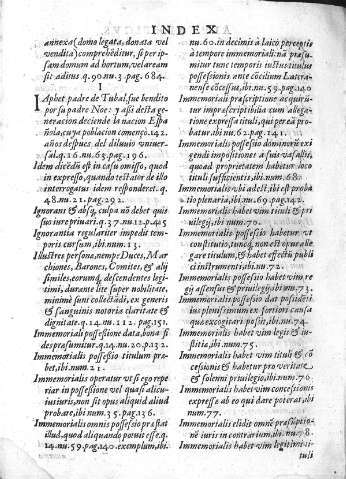 INDEX
annexa (domo legata, donata vel
vendita) comprehēditur, si per ip-
sam domum ad hortum, vel aream
sit aditus q.90.nu.3.pag.684.
I
Iaphet padre de Tubal, fue bendito
por su padre Noe: y assi desta ge-
neracion deciende la nacion Espa
ñola, cuya poblacion començò.142.
años despues del diluuio vniuer-
sal.q.26.nu.63.pag.196.
Idem dicēdū est in casu omisso, quod
in expresso, quando testator de illo
interrogatus idem responderet. q.
48.nu.21.pag.292.
Ignorans & absq; culpa nō debet quis
suo iure priuari. q.37.nu.12.p.245
Ignorantia regulariter impedit tem-
poris cursum, ibi.nu.13.
Illustres persona, nempe Duces, Mar
chiones, Barones, Comites, & alij
similes, eorumq; descendentes legi-
timi, durante lite super nobilitate,
minimè sunt collectādi, ex generis
& sanguinis notoria claritate &
dignitate. q.14.nu.212.pag.151.
Immemorialis possessio data, bona fi
des præsumitur. q.14.nu.20.p.132.
Immemorialis possessio titulum præ-
bet, ibi num.21.
Immemorialis operatur vt si ego repe
riar in possessione vel quasi alicu-
ius iuris, non sit opus aliquid aliud
probare, ibi num.35.pag.136.
Immemorialis omnis possessio præstat
illud, quod aliquando potuit esse. q.
14.nu.59.pag.140.exemplum, ibi.
nu.60. in decimis à laico perceptis
à tempore immemoriali: nā præsu-
mitur tunc temporis iustus titulus
possessionis ante cōcilium Latera-
nense cōcessus, ibi.nu.59.pag.140
Immemoriali præscriptione acquiri-
tur impræscriptibilia cum allega-
tione expressa tituli, qui per eā pro-
batur. ibi nu.62.pag.141.
Immemorialis possessio dominorū exi-
gendi impositiones à suis vasallis,
quoad proprietatem habetur loco
tituli sufficientis, ibi num.68.
Immemorialis vbi adest, ibi est proba
tio plenaria, ibi.nu.69.pag.142.
Immemorialis habet vim tituli & pri-
uilegij, ibi num.70.
Immemorialis possessio habetur vt
constitutio, tuncq; non est opus alle
gare titulum, & habet effectū publi
ci instrumenti, ibi nu.72.
Immemorialis possessio habet vim re
gij assensus & priuilegij, ibi nu.73.
Immemorialis possessio dat possidēti
ius plenissimum ex fortiori causa
quæ excogitari possit, ibi nu.74.
Immemorialis habet vim legis & iu-
stitiæ, ibi num.75.
Immemorialis habet vim tituli & cō
cessionis & habetur pro veritate,
& solenni priuilegio, ibi nu.70.
Immemorialis habet vim concessionis
expressæ ab eo qui dare poterat, ibi
num.77.
Immemorialis elidit omnē præsūptio-
nē iuris in contrarium, ibi nu.78.
Immemorialis habet vim legitimi ti-
tuli